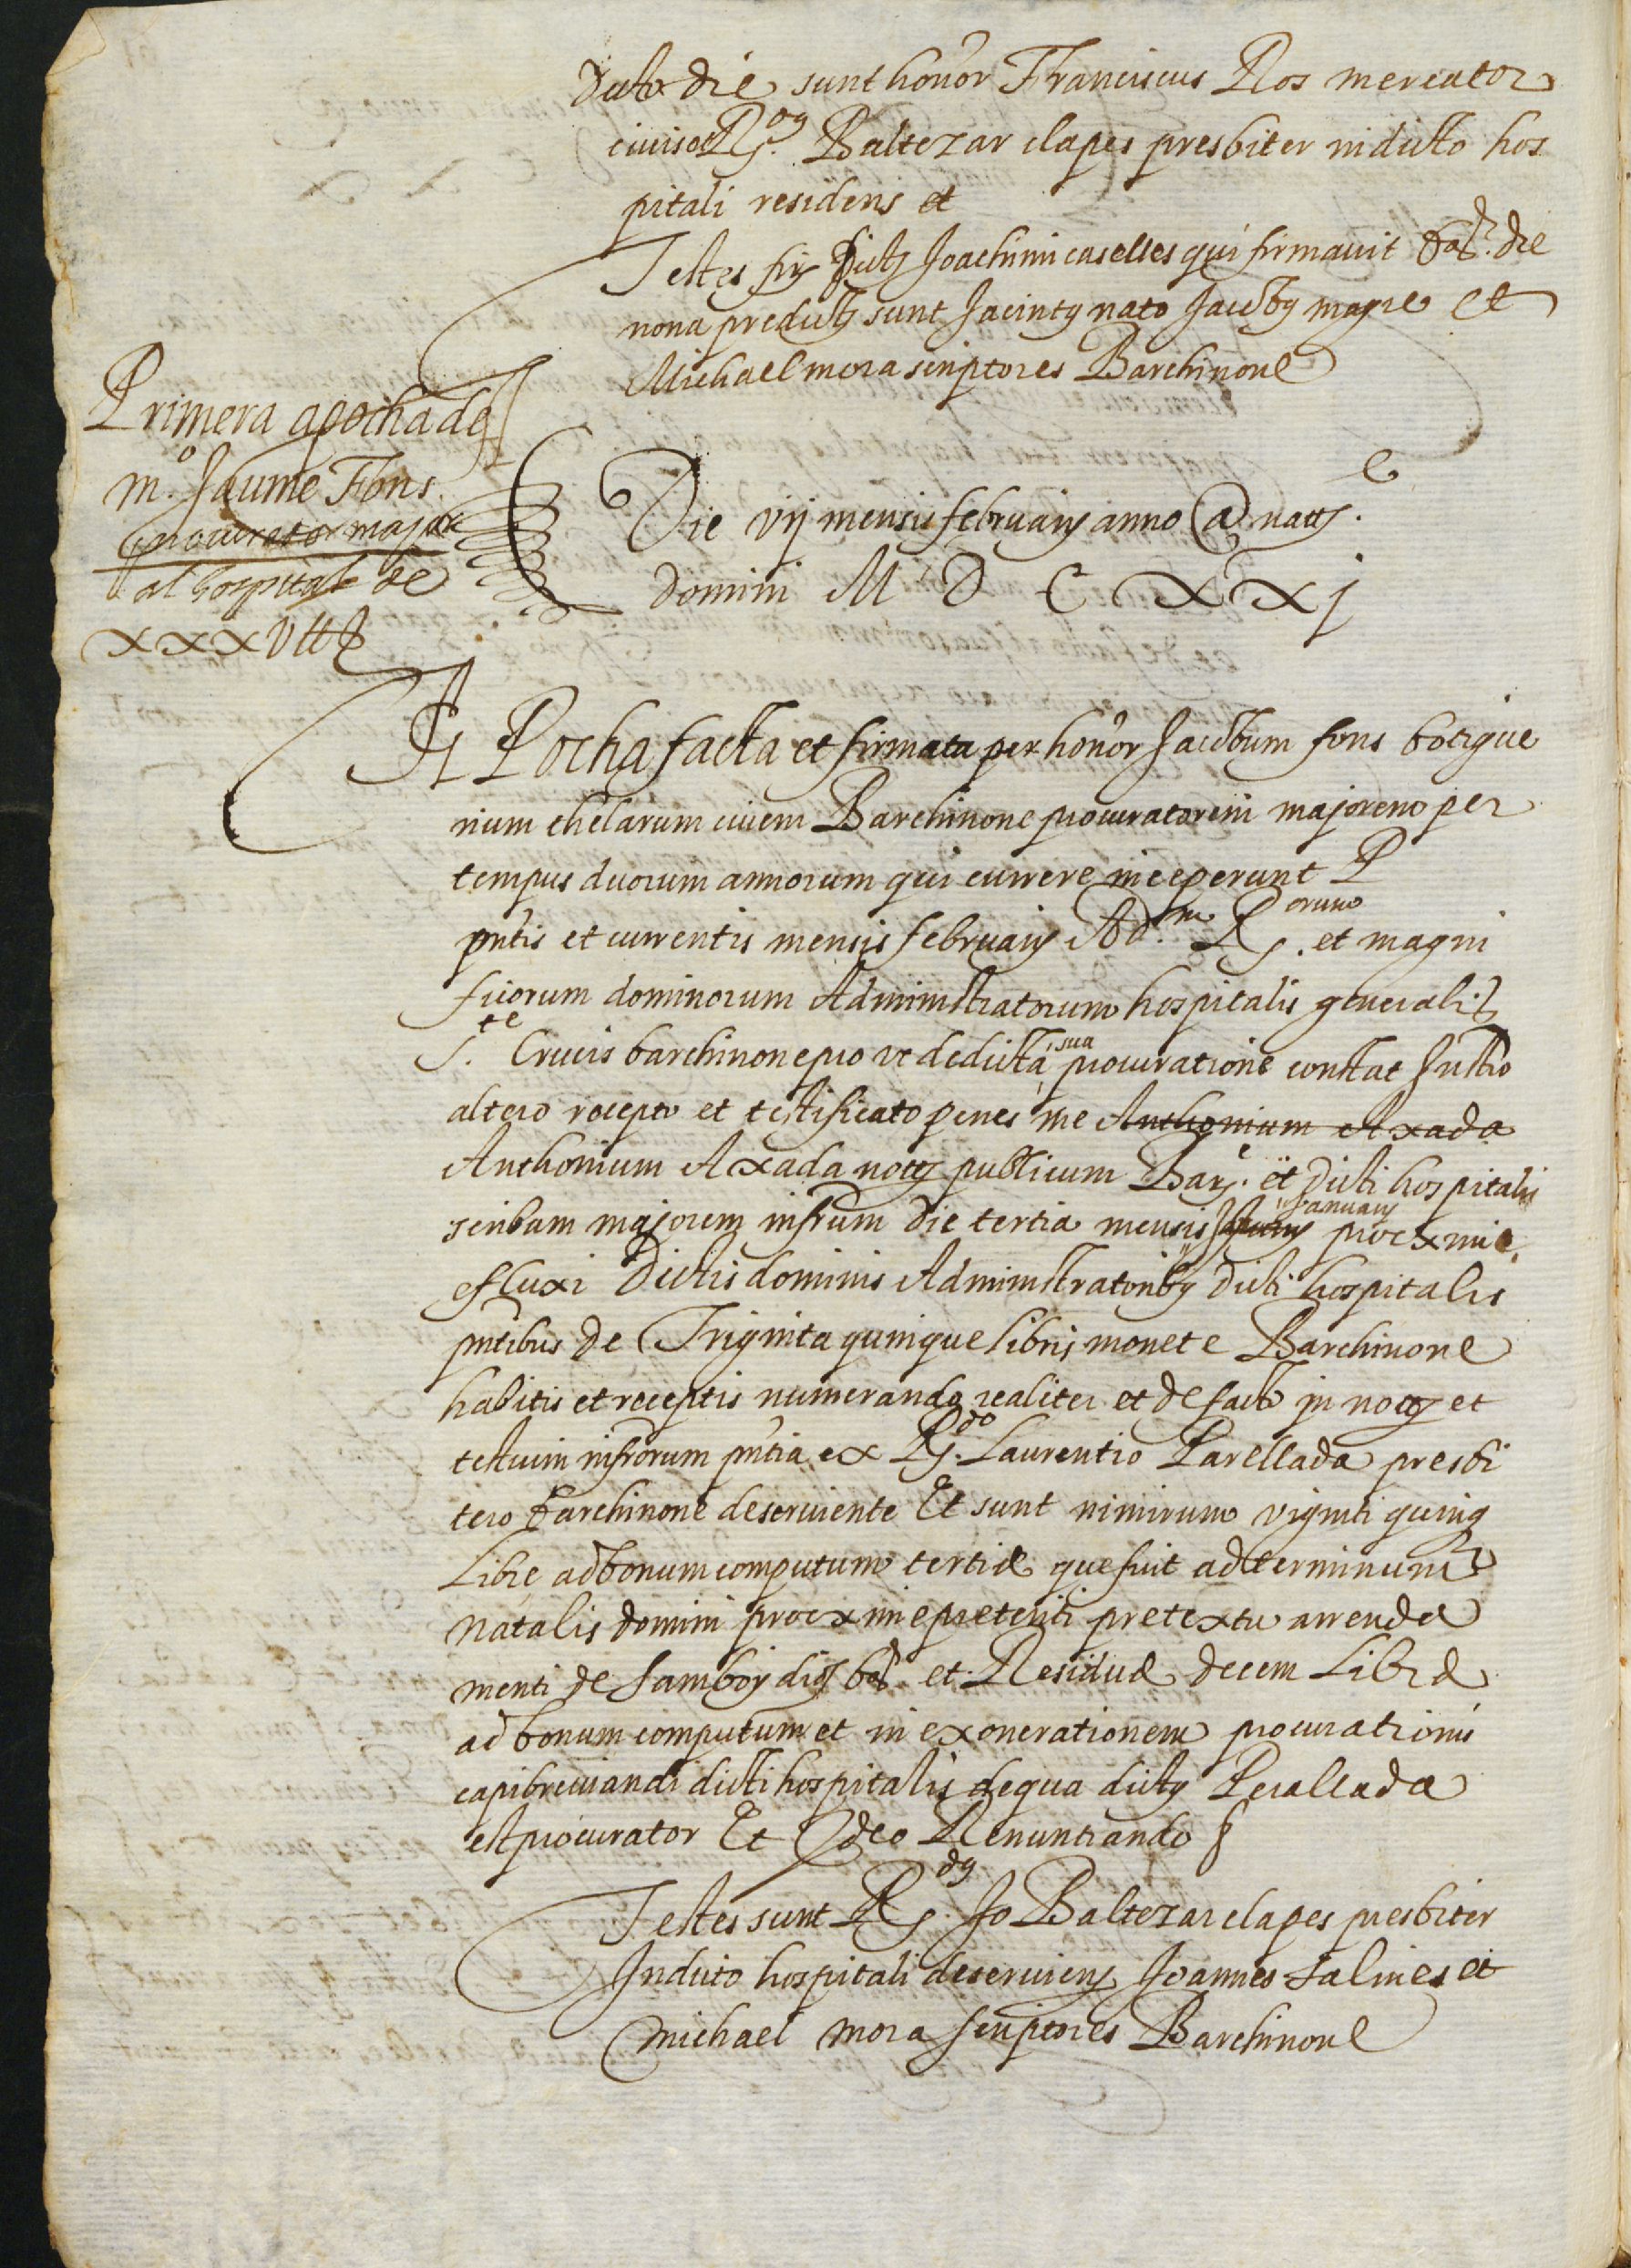 dicto die sunt honor Franciscus Ros mercator
civis et R. Baltezar clapes presbiter in dicto hos
pitali residens et
Testes fir dicti Joachimi caselles qui firmavit die
nona predicti sunt Jacintus nato Jacobus magre et
Michael mora scriptores Barchinone
Primera apocha de
mº. Jaume Fons.
procurator major
al hospital de
xxxv ll
Die vij mensis februarij anno a nattᵉ.
domini M D C X X j
APocha facta et firmata per honor Jacobum fons botigue
rium thelarum civem Barchinone procuratorem majorem per
tempus duorum annorum qui currere inceperunt P
pntis et currentis mensis februarij Ad.m R.orum et magni
ficorum dominorum Administratorum hospitalis generalis
S.te Crucis barchinone pro ut de dicta sua procuratione constat Instro
altero recepto et testificato penes me Anthonium Axada
Anthonium Axada notm publicum Bar. et dicti hospitalis
scribam majorem infrum die tertia mensis January proexmie
efluxi dictis dominis Administratoribus dicti hospitalis
pntibus de Triginta quinque libris monete Barchinone
habitis et receptis numerando realiter et de facto in notij et
testium infrorum pntia ex R.do Laurentio Parellada presbi
tero barchinone deserviente Et sunt nimirum viginti quinq
Libre ad bonum computum tertie que fuit ad terminum
Natalis domini proexmie preteriti pretextu arrenda
menti de Samboy dic et Residue decem Libre
ad bonum computum et in exonerationem procurationis
capibreviandi dicti hospitalis de qua dictus Perallada
est procurator Et Ideo Renuntiando §
Testes sunt R.dus Jo Baltezar clapes presbiter
In dicto hospitali deserviens Joannes Salines et
michael mora scriptores Barchinone